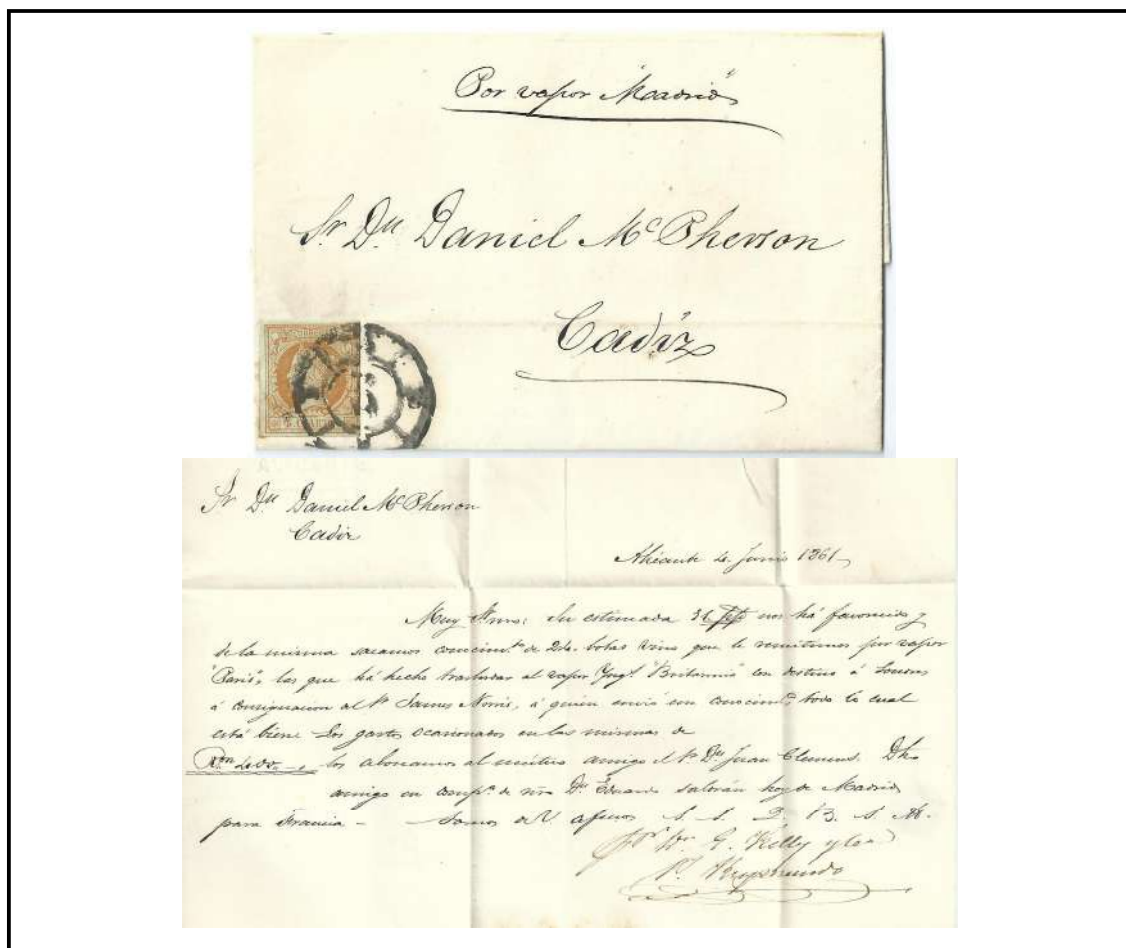 Por vapor "Madrid"
Sr. Dn. Daniel McPherson
Cadiz
Sr. Dn. Daniel McPherson
Cadiz
Alicante 4 Junio 1861
Muy Sres: Su estimada 31 nos há favorecido y
de la misma sacamos conocimto. de botas vino que le remitimos por vapor
"Paris", las que há hecho trasladar al vapor Yngl. "Britannia" con destino á Londres
á consignacion al Sr. James Norris, á quien envió un conocimto. todo lo cual
está bien. Los gastos ocasionados en las mismas de
los abonamos al mútuo amigo el Sr. Dn. Juan Clemens. Dho
amigo en compa. de nro Dn. Eduardo saldrán hoy de Madrid
para Francia – Somos de V. afmos S. S. Q. B. S. M.
Kelly y Ca